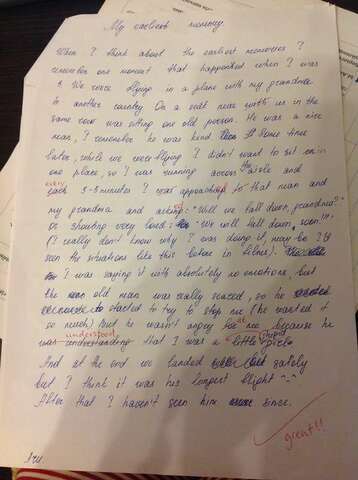 My earliest memory
When I think about the earliest memories I
remember one moment that happened when I was
5. We were flying in a plane with my grandma
to another country. On a seat near with us in the
same row was siting one old person. He was a nice
man, I remember he was kind. Some time
later, while we were flying I didn't want to sit on
one place, so I was running across the aisle and
every
each 3-5 minutes I was approaching to that man and
my grandma and asking: "Will we fall down, grandma?"
or shouting very loud: "We will fall down, soon!!"
(I really don't know why I was doing it, may be I
seen the situations like this before in films).
I was saying it with absolutely no emotions, but
the old man was really scared, so he
started to try to stop me (he wanted it
so much) But he wasn't angry at me, because he
understood
was understanding that I was a little
And at the end we landed safely
but I think it was his longest flight
After that I haven't seen him since.
great!!